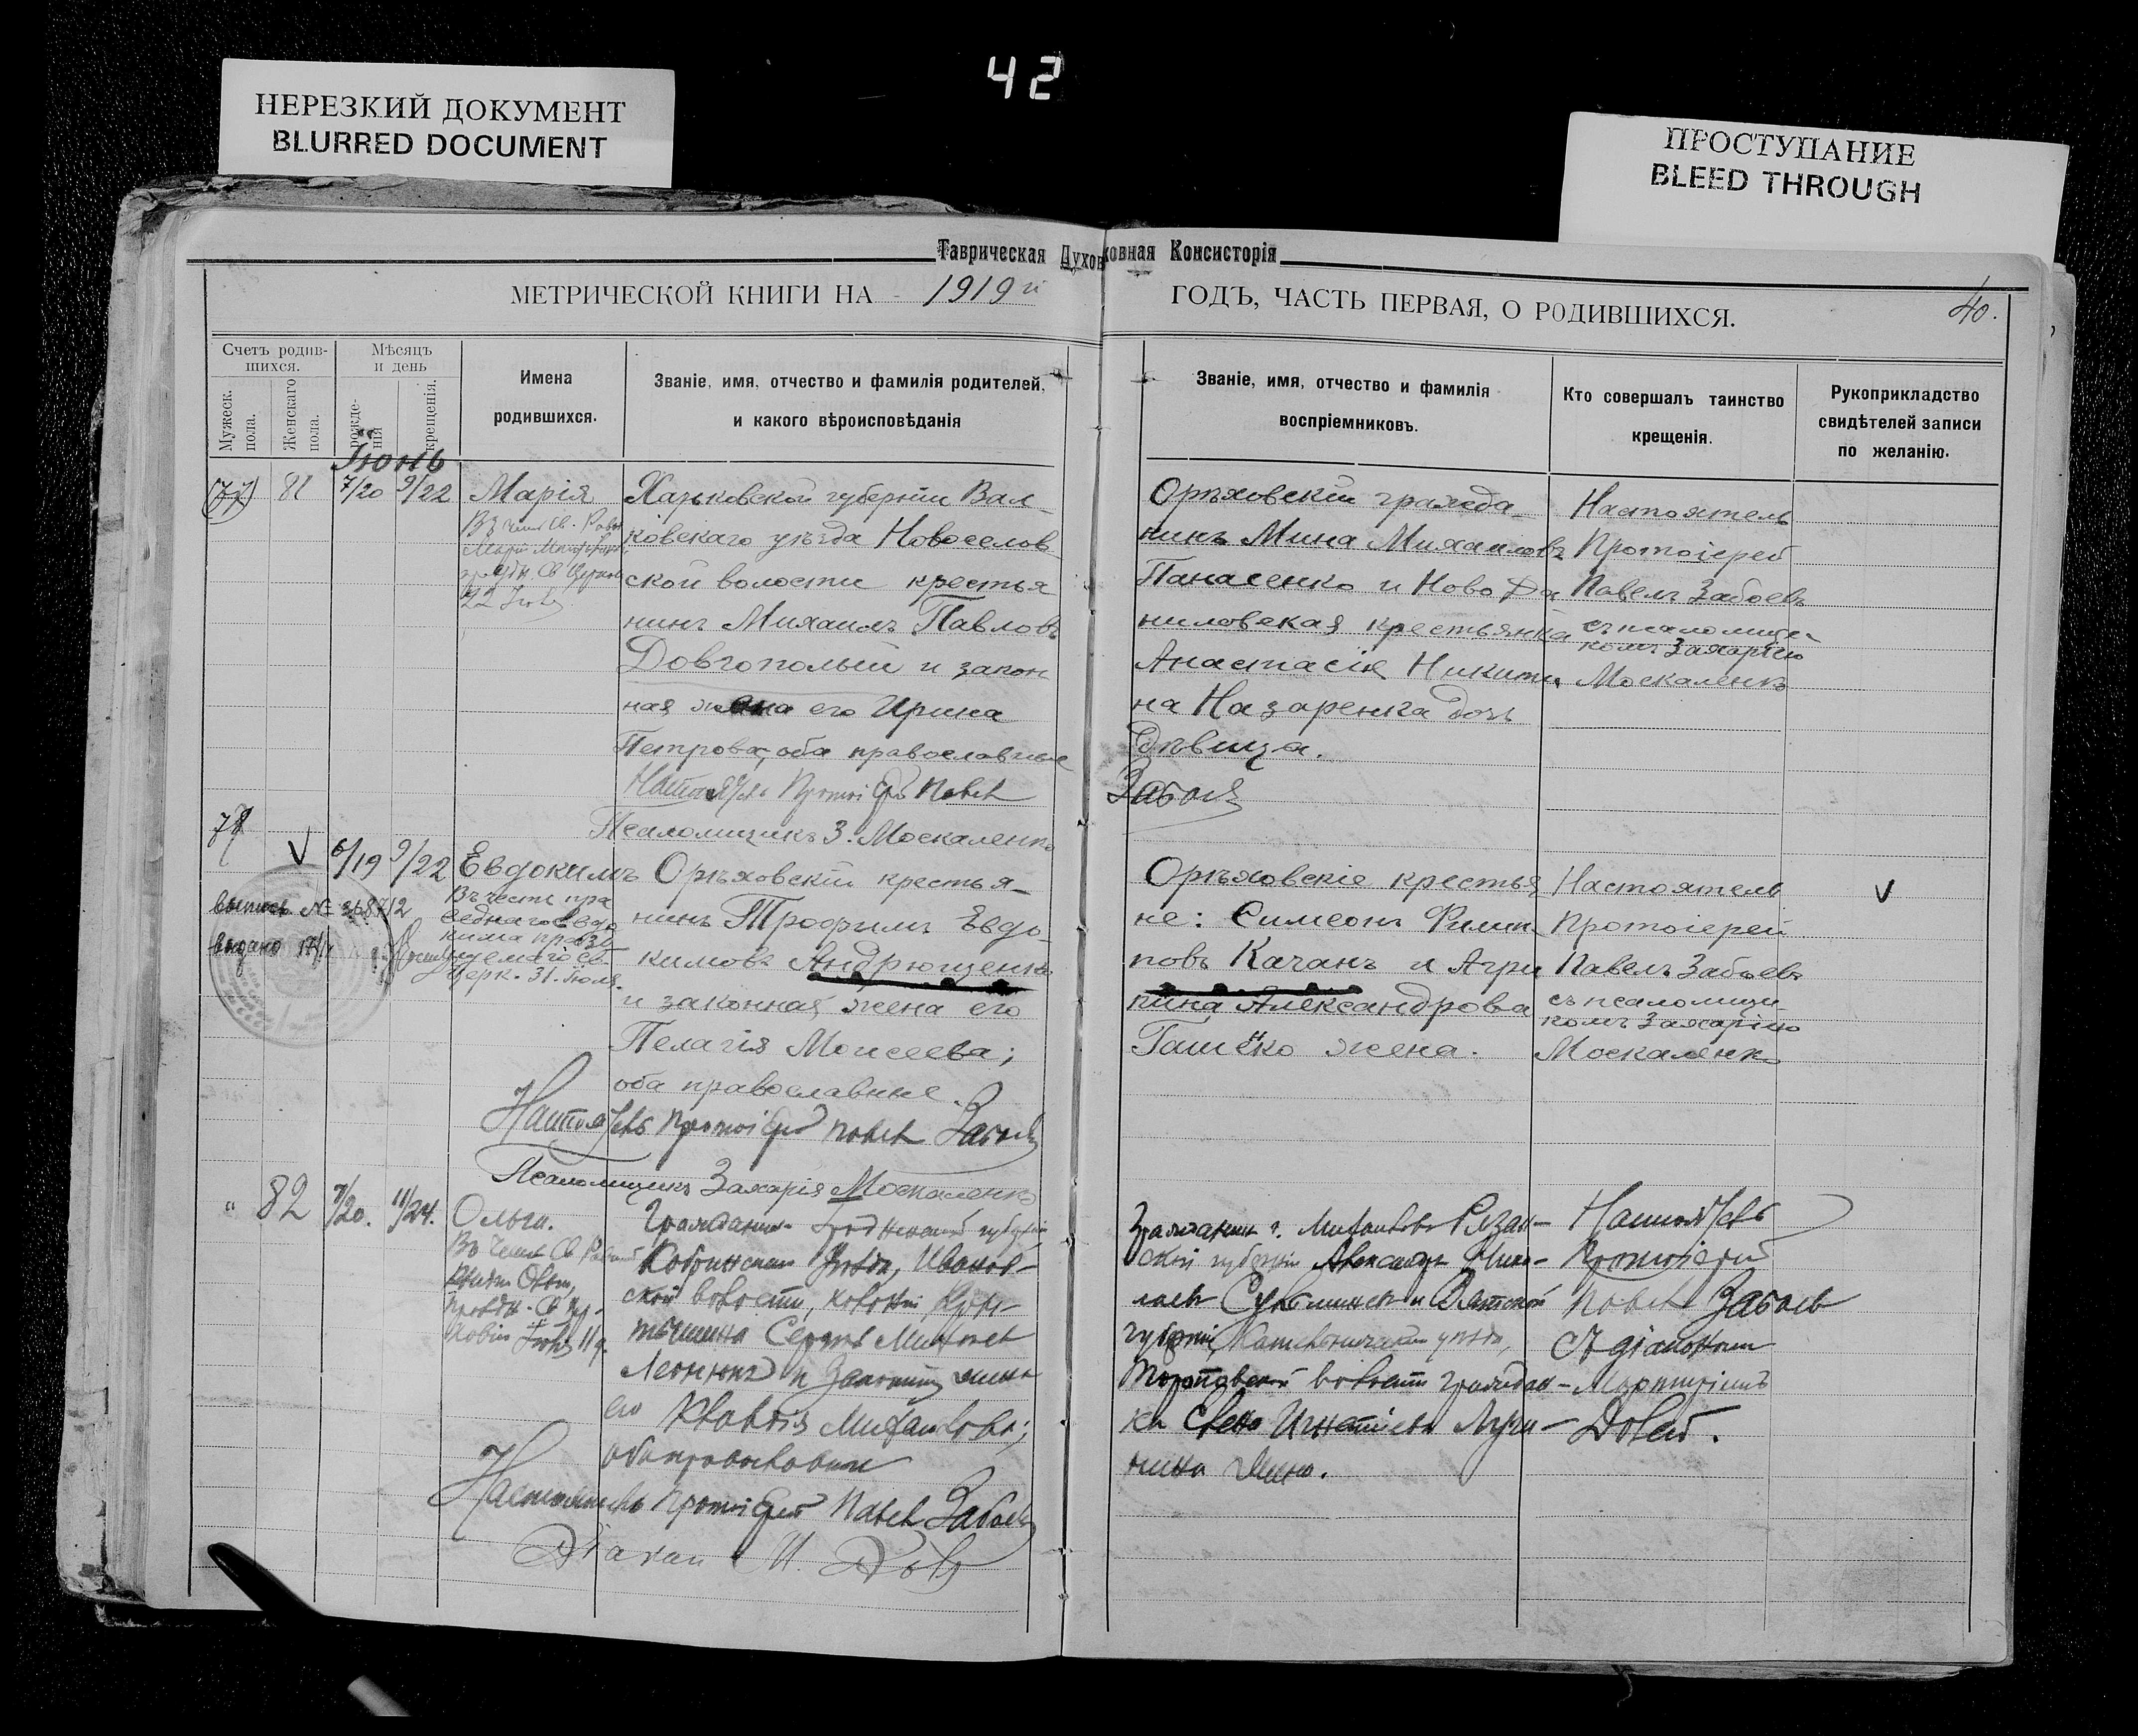 42
НЕРЕЗКИЙ ДОКУМЕНТ
BLURRED DOCUMENT
ПРОСТУПАНИЕ
BLEED THROUGH
Таврическая Духовная Консисторія
МЕТРИЧЕСКОЙ КНИГИ НА 1919й ГОДЪ, ЧАСТЬ ПЕРВАЯ, О РОДИВШИХСЯ.
40.
Счетъ родив-
шихся.
Мужеск.
пола.
Женскаго
пола.
Мѣсяцъ
и день
рожде-
нія
крещенія.
Имена
родившихся.
Званіе, имя, отчество и фамилія родителей,
и какого вѣроисповѣданія
Званіе, имя, отчество и фамилія
воспріемниковъ.
Кто совершалъ таинство
крещенія.
Рукоприкладство
свидѣтелей записи
по желанію.
Іюнь
81
7/20 9/22
Марія
Въ Св.
Св. Церков
22
Харьковской губерніи Вал-
ковскаго уѣзда Новоселов
ской волости крестья
нинъ Михаилъ Павловъ
Довгополый и закон
ная жена его Ирина
Петрова, оба православные
Протоіерей Павел
Псаломщикъ З. Москаленко
Орѣховскій гражда-
нинъ Мина Михаиловъ
Панасенко и Ново Да
ниловская крестьянка
Анастасія Никити
на Назаренка дочь
Дѣвица.
Забоев
Настоятель
Протоіерей
Павелъ Забоевъ
съ псаломщи-
комъ Захаріею
Москаленко
78
6/19 9/22
Евдокимъ
Въ честь пра
веднаго Евдо
кима празд
нуемаго св.
Церк. 31. Іюля.
выпись № 3687/2
выдано
Орѣховскій крестья-
нинъ Трофимъ Евдо-
кимовъ Андрющенко
и законная жена его
Пелагія Моисеева;
оба православные.
Настоятель Протоіерей Павел Забоев
Псаломщикъ Захарія Москаленко
Орѣховскіе крестья
не: Симеонъ Филип
повъ Качанъ и Агри
пина Александрова
жена.
Настоятель
Протоіерей
Павелъ Забоевъ
съ псаломщи
комъ Захаріею
Москаленко
" 82
7/20. 11/24.
Ольги.
Въ Честь Св.
Ольги,
Св.
11 д.
Гражданин Гродненской губерніи
Кобринскаго Уѣзда, Иванов-
ской волости,
Сергѣй
и Законной жены
его
оба православные
Настоятель Протоіерей Павел Забоев
Діакон
Гражданин г. Рязан-
ской губерніи Александр Нико-
лаев и Вятской
губерніи, уѣзда,
волости граждан-
ка Игнатіева
жена.
Настоятель
Протоіерей
Павел Забоев
съ діаконом